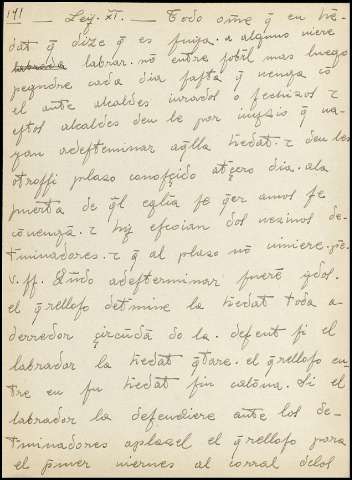 141 — Ley. XI. — Todo om̄e q̄ eu h̄e-
dat q̄ dize q̄ es suya. a alguno viere
labrar. nō entre sobrl mas luego
peyndre cada dia fasta q̄ venga cō
el ante alcaldes iurados o fechizos ⁊
estos alcaldes den le por iuyzio q̄ va-
yan adeterminar aq̄lla h̄edat. ⁊ den les
otrossi plazo conosçido atc̄ero dia. ala
puerta de q̄l eglīa se q̄er amos se
cōvengā. ⁊ hȳ escoian dos vezinos de-
t̄minadores. ⁊ q̄ al plazo nō viniere. pō
v. ss. Q̄ndo adeterminar fuerē ydos.
el q̄rellosso det̄mine la h̄edat toda a-
derredor çircūdā do la. defent si el
labrador la h̄edat q̄tare. el q̄rellosso en-
tre en su h̄edat sin calōna. Si el
labrador la defendiere ante los de-
t̄minadores aplazel el q̄rellosso para
el p̄mer viernes al corral delos